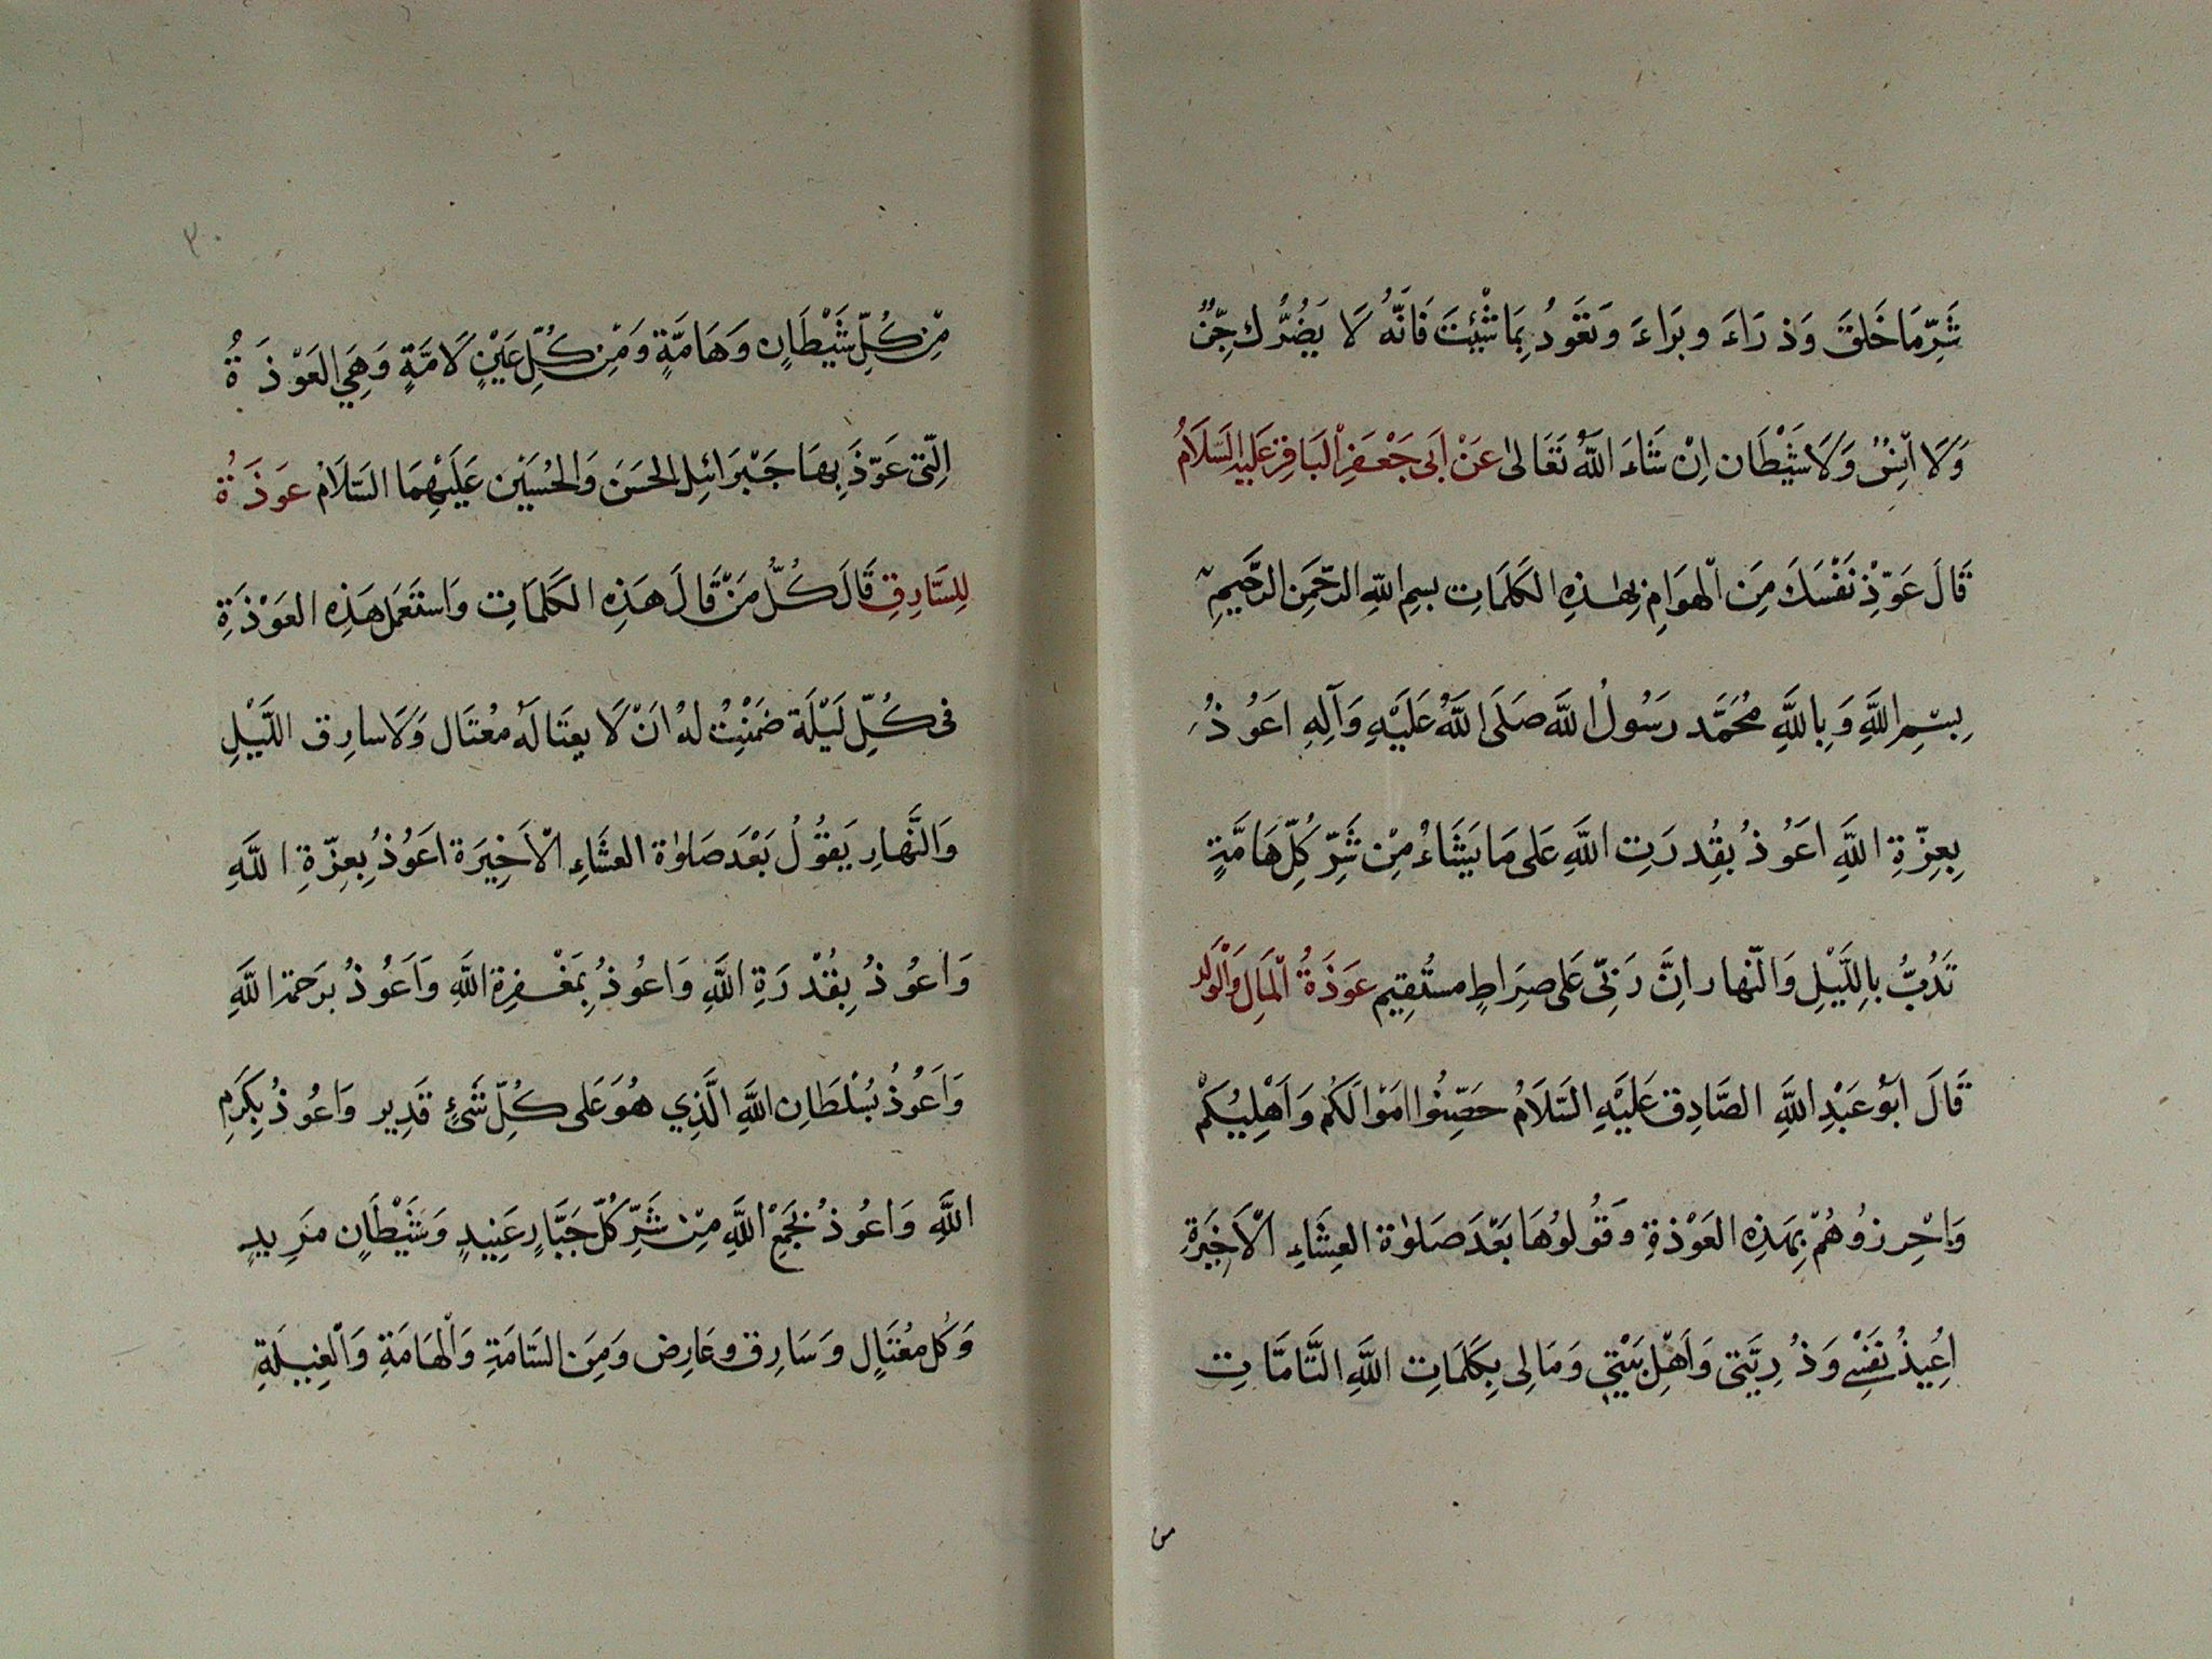 شَرِّ مَا خَلَقَ وَذ رَاءَ وبَرَاءَ وتَعَوذُ بِمَا شْئِتَ فَانَّهُ لَا يَضُرُّك جِّنٌ
وَلَا اْنِسٌ وَلَا شَيْطَان اِنْ شَاءَ اللَّهُ تَعَالىٰ عَنْ اَبى جَعْفَرِ اْلبَاقِرْ عَلَيهِ السَّلَامُ
قَالَ عَوّذِْ نَفْسَكَ مِنَ اْلهوَامِ بِهٰذِهِ الكَلَمَاتِ بسِمِ اللهِ الرحّمَنِ الرَّحيمِ
بِسْمِ اللَّهِ وَبِاللَّهِ مُحَمَّد رَسُولُ اللَّه صَلَى اللَّهُ عَلَيْهِ وَآلِهِ اعَوُذُ
بِعِزّةِ اللَّهِ اعَوُذُ بِقُدرَتِ اللَّهِ عَلى مَا يَشَاءُ مِنْ شَرِّ كُلِّ هَامَّةٍ
تَدُبُّ باِللَّيْلِ وَالنّهار انَّ رَبّى عَلى صِرَاطٍ مستُقِيم عَوَذَةُ اْلمَالِ وَاْلوَلَد
قَالَ ابَوُ عَبْدِ اللَّهِ الصَّادِق عَلَيْهِ السَّلَامُ حَصّنِوُا امَوْالَكمُ وَاَهْلِيْكمْ
وَاحْرِزوُهُمْ بِهَذِهِ العَوْذةِ وقَوُلوُهَا بَعْدَ صَلوٰة العِشَاءِ الْاَخِيَرةِ
اُعِيذُ نفَسْى وَذُ رِيَّتى وَاَهْلِ بَيْتي وَمَالِى بِكَلَمَاتِ اللَّهِ التَّامَّاتِ
من
٣٠
مِنْ كُلِّ شَيْطَانٍ وَهَامَّةٍ وَمِنْ كُلِّ عَيْنٍ لَامَّةٍ وَهِيَ العَوْذَةُ
الِّتى عَوّذَ بِهَا جَبْرَائيِل الحَسَنَ وَالحُسَيَنْ عَلَيْهِمَا السَّلَامُ عَوَذَةُ
لِلسَّارِقِ قَالَ كُلُّ مَنْ قَالَ هَذِهِ الكَلمَاتِ وَاستَعَمَل هَذِهِ العَوْذَةِ
فى كُلِّ لَيْلَة ضَمَنْتُ لهُ انَْ لَا يغتَالهُ مغُتَال وَلَا سارِق اللَّيْلِ
وَالنَّهارِ يَقوُلُ بَعْدَ صَلوٰة العشَاءِ الْاَخِيَرة اعَوُذُ بِعِزّةِ اللَّهِ
وَاعوُذُ بِقُدْرَةِ اللَّهِ وَاعوُذُ بِمَغْفِرةِ اللَّهِ وَاَعَوُذُ برَحمَة اللَّهِ
وَاَعَوُذُ بسُلْطَانِ اللَّهِ الَّذِي هُوَ عَلى كُلِّ شَئٍ قَدِير وَاعوُذُ بِكَرَمِ
اللَّهِ وَاعوُذُ بجَمْعِ اللَّهِ مِنْ شَرِّ كُلّ جَبَّارٍ عَنِيدٍ وَشَيْطَانٍ مَرِيدٍ
وَكُل مغُتَالٍ وَسَارِق وعَارِض وَمِنَ السَّامَةِ وَاْلهَامَةِ وَاْلعِيْلَةِ